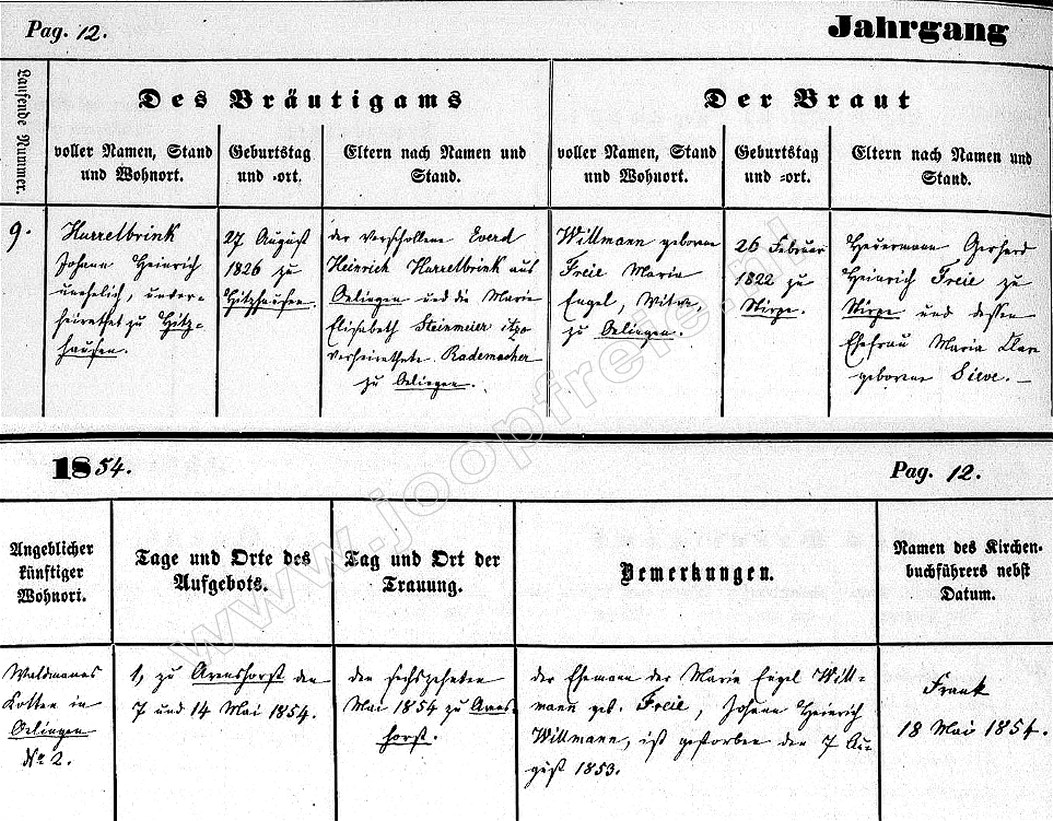 Pag. 12.
Jahrgang
Laufende Nummer.
Des Bräutigams
Der Braut
voller Namen, Stand
und Wohnort.
Geburtstag
und -ort.
Eltern nach Namen und
Stand.
voller Namen, Stand
und Wohnort.
Geburtstag
und -ort.
Eltern nach Namen und
Stand.
9.
Harrelbrink
Johann Heinrich
unehelich, unver-
heirathet zu Hitz-
hausen.
27 August
1826 zu
Hitzhausen.
der verschollene Everd
Heinrich Harrelbrink aus
Oelingen und die Marie
Elisabeth Steinmeier itzo
verheirathete Rademacher
zu Oelingen.
Willmann geborne
Freie Maria
Engel, Witwe,
zu Oelingen.
26 Februar
1822 zu
Stirpe.
Heuermann Gerhard
Heinrich Freie zu
Stirpe und dessen
Ehefrau Maria Clara
geborne Sieve. –
www.joopfreie.nl
1854.
Pag. 12.
Angeblicher
künftiger
Wohnort.
Tage und Orte des
Aufgebots.
Tag und Ort der
Trauung.
Bemerkungen.
Namen des Kirchen-
buchführers nebst
Datum.
Waldmanns
Kotten in
Oelingen
No 2.
1, zu Arenshorst den
7 und 14 Mai 1854.
den sechszehnten
Mai 1854 zu Arens-
horst.
der Ehemann der Marie Engel Will-
mann geb. Freie, Johann Heinrich
Willmann, ist gestorben den 7 Au-
gust 1853.
Frank
18 Mai 1854.